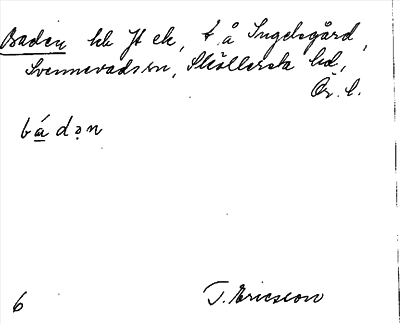 Baden hk Jt ek, t. å Ingelsgård,
Svennevads sn, Sköllersta hd,
Ör. l.
bádən
6
T. Ericsson